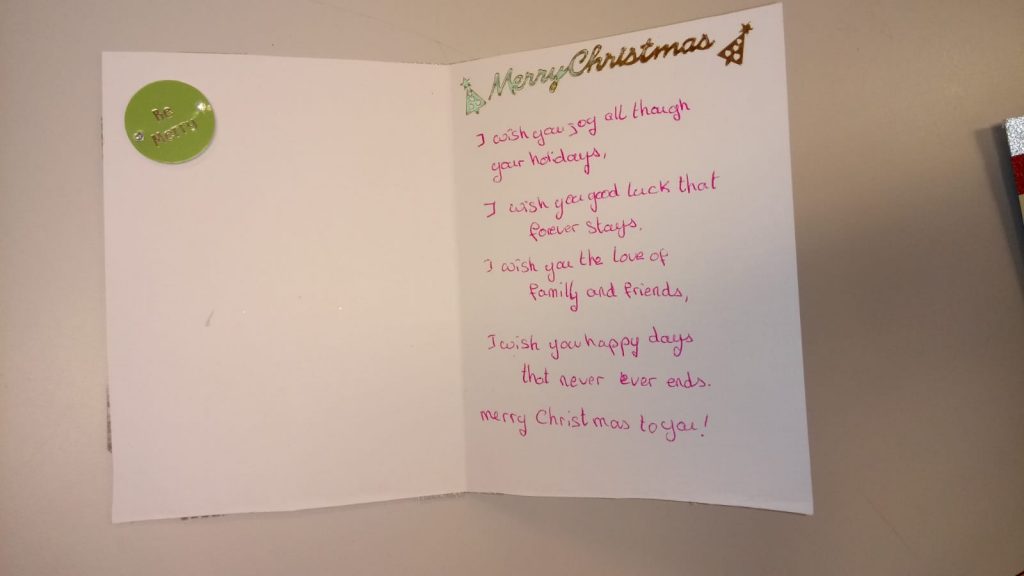 Be
Merry
Merry Christmas
I wish you joy all though
your holidays,
I wish you good luck that
forever stays,
I wish you the love of
family and friends,
I wish you happy days
that never ever ends.
merry Christmas to you!